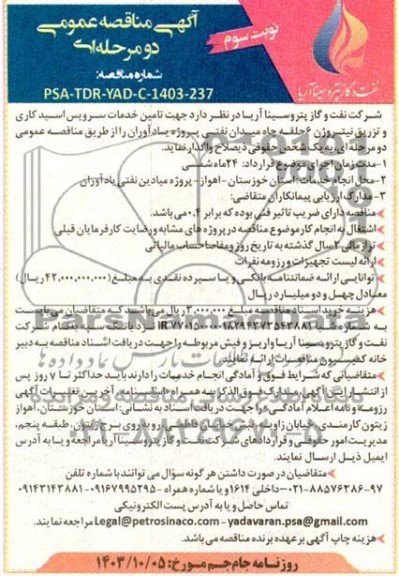 آگهی مناقصه عمومی
دو مرحله‌ای
نوبت سوم
شماره مناقصه:
PSA-TDR-YAD-C-1403-237
نفت و گاز پتروسینا آریا
شرکت نفت و گاز پتروسینا آریا در نظر دارد جهت تامین خدمات سرویس اسید کاری
و تزریق نیتروژن ۶ حلقه چاه میدان نفتی پروژه یادآوران را از طریق مناقصه عمومی
دو مرحله‌ای، به یک شخص حقوقی ذیصلاح واگذار نماید.
۱- مدت زمان اجرای موضوع قرارداد: ۲۴ ماه شمسی
۲- محل انجام خدمات: استان خوزستان - اهواز - پروژه میادین نفتی یادآوران
۳- مدارک ارزیابی پیمانکاران متقاضی:
مناقصه دارای ضریب تاثیر فنی بوده که برابر ۰.۴ می باشد.
اشتغال به انجام کار موضوع مناقصه در پروژه های مشابه و رضایت کارفرمایان قبلی
تراز مالی ۲ سال گذشته به تاریخ روز و مفاصا حساب مالیاتی
ارائه لیست تجهیزات و رزومه نفرات
توانایی ارائه ضمانتنامه بانکی و یا سپرده نقدی به مبلغ (۴۲,۰۰۰,۰۰۰,۰۰۰ ریال)
معادل چهل و دو میلیارد ریال
هزینه خرید اسناد مناقصه مبلغ ۲,۰۰۰,۰۰۰ ریال می باشد که متقاضیان می بایست
به شماره شبا نزد بانک به نام شرکت
نفت و گاز پتروسینا آریا واریز و فیش مربوطه را جهت دریافت اسناد مناقصه به دبیر
خانه کمیسیون مناقصات ارائه نمایند.
متقاضیانی که شرایط فوق و آمادگی انجام خدمات را دارند باید حداکثر تا ۷ روز پس
از انتشار این آگهی مدارک فوق الذکر به همراه اساسنامه، آخرین تغییرات آگهی
رزومه و نامه اعلام آمادگی را جهت دریافت اسناد به نشانی: استان خوزستان، اهواز
زیتون کارمندی، خیابان زاویه، نبش خیابان فاطمی، روبه روی برج زیتون، طبقه پنجم،
مدیریت امور حقوقی و قراردادهای شرکت نفت و گاز پتروسینا آریا مراجعه و یا به آدرس
ایمیل ذیل ارسال نمایند.
متقاضیان در صورت داشتن هر گونه سؤال می توانند با شماره تلفن
۰۲۱-۸۸۵۷۶۳۸۶-۹۷ داخلی ۱۶۱۴ و یا شماره همراه ۰۹۱۶۷۹۹۵۲۹۵ - ۰۹۱۴۳۱۴۳۸۸۱
تماس حاصل و یا به آدرس پست الکترونیکی
Legal@petrosinaco.com - yadavaran.psa@gmail.com مراجعه نمایند.
هزینه چاپ آگهی بر عهده برنده مناقصه می باشد.
روزنامه جام جم مورخ: ۱۴۰۳/۱۰/۰۵